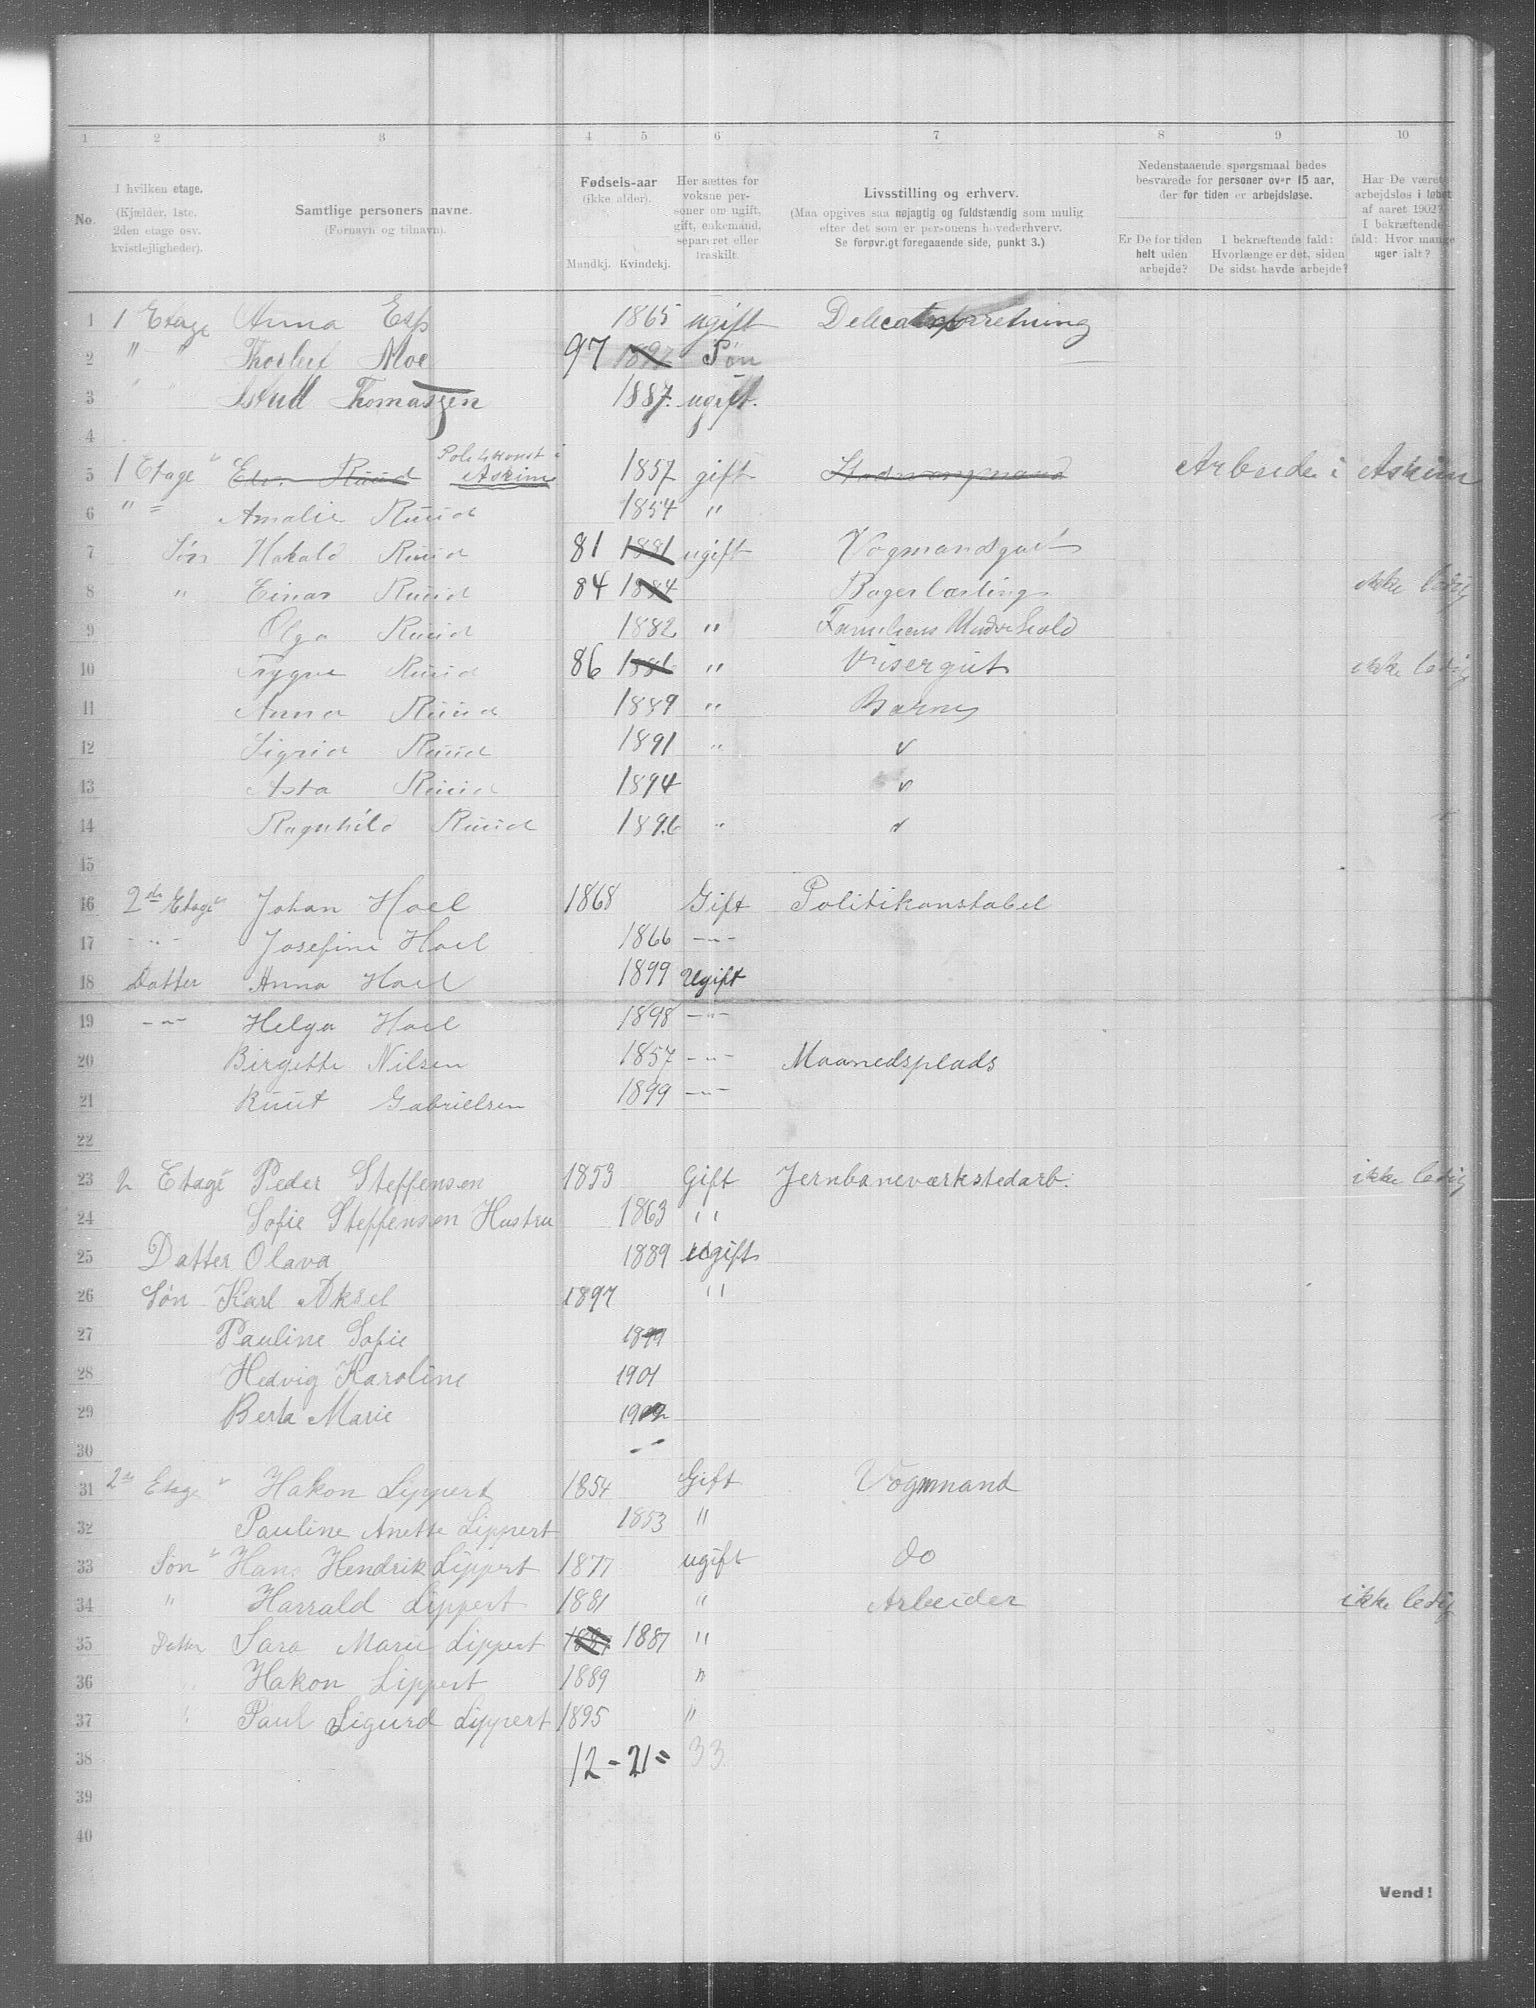 1 2 3 4 5 6 7 8 9 10
No.
I hvilken etage. (Kjælder, 1ste, 2den etage osv. kvistlejligheder).
Samtlige personers navne. (Fornavn og tilnavn).
Fødsels-aar (ikke alder). Mandkj. Kvindekj.
Her sættes for voksne personer om ugift, gift, enkemand, separeret eller fraskilt.
Livsstilling og erhverv. (Maa opgives saa nøjagtig og fuldstændig som mulig efter det som er personens hovederhverv. Se forøvrigt foregaaende side, punkt 3.)
Nedenstaaende spørgsmaal bedes besvarede for personer over 15 aar, der for tiden er arbejdsløse.
Er De for tiden helt uden arbejde?
I bekræftende fald: Hvorlænge er det, siden De sidst havde arbejde?
Har De været arbejdsløs i løbet af aaret 1902? I bekræftende fald: Hvor mange uger ialt?
1 1 Etage Anna Esp 1865 ugift Delicatesforretning
2 " " Moe 97 1897 Søn
3 " " Thomassen 1887. ugift.
4
5 1 Etage Ruud Politikonst i Askim 1857 gift Arbeide i Askim
6 " " Amalie Ruud 1854 "
7 Søn Harald Ruud 81 1881 ugift Vognmandsgut
8 " Einar Ruud 84 1884 Bagerlærling ikke ledig
9 Olga Ruud 1882 "
10 Trygve Ruud 86 1886 " Visergut ikke ledig
11 Anna Ruud 1889 " Barn
12 Sigrid Ruud 1891 " "
13 Asta Ruud 1894 "
14 Ragnhild Ruud 1896 " "
15
16 2den Etage Johan Hoel 1868 Gift Politikonstabel
17 - " - Josefine Hoel 1866 - " -
18 Datter Anna Hoel 1899 Ugift
19 - " - Helga Hoel 1898 - " -
20 Birgette Nilsen 1857 - " - Maanedsplads
21 Ruut Gabrielsen 1899 - " -
22
23 2 Etage Peder Steffensen 1853 Gift Jernbaneværkstedarb. ikke ledig
24 Sofie Steffensen Hustru 1863 "
25 Datter Olava 1889 ugift
26 Søn Karl Aksel 1897 "
27 Pauline Sofie 1899
28 Hedvig Karoline 1901
29 Berta Marie 1902
30
31 2de Etage Hakon Lippert 1854 Gift Vognmand
32 Pauline Anette Lippert 1853 "
33 Søn Hans Hendrik Lippert 1877 ugift do
34 " Harrald Lippert 1881 " Arbeider ikke ledig
35 Datter Sara Marie Lippert 1887 1887 "
36 Hakon Lippert 1889 "
37 Paul Sigurd Lippert 1895 "
38 12 - 21 = 33
39
40
Vend!